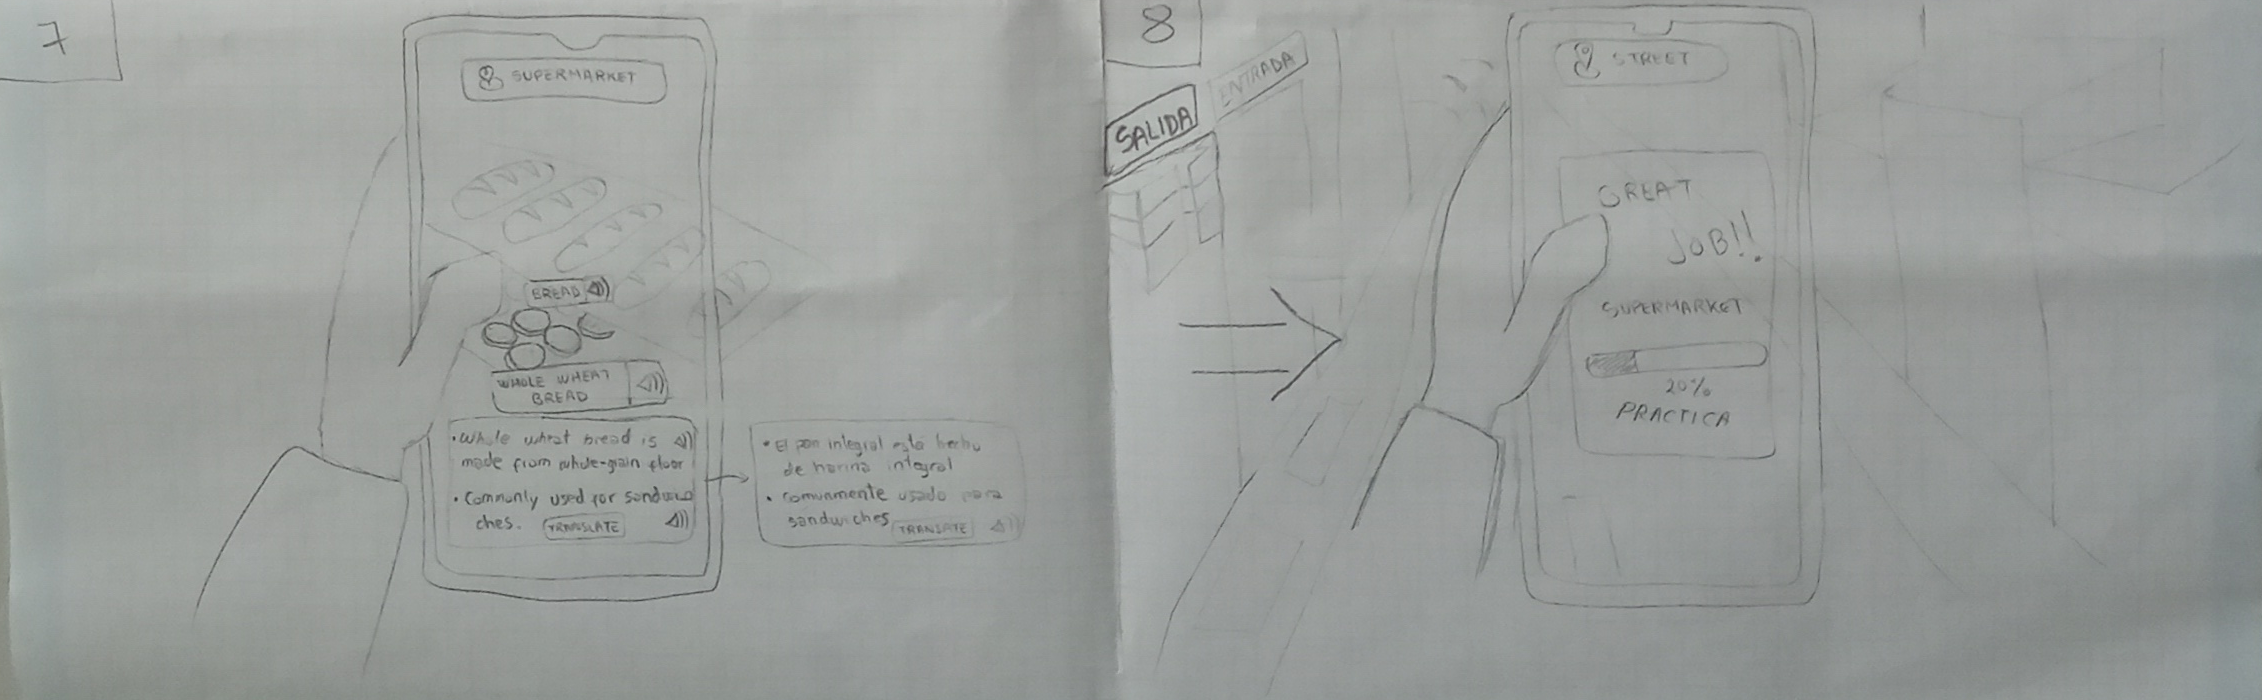 7
SUPERMARKET
BREAD
WHOLE WHEAT
BREAD
• Whole wheat bread is
made from whole-grain floor
• Commonly used for sandwi
ches.
TRANSLATE
• El pan integral está hecho
de harina integral
• comunmente usado para
sandwiches
TRANSLATE
8
ENTRADA
SALIDA
STREET
GREAT
JOB!!
SUPERMARKET
20%
PRACTICA